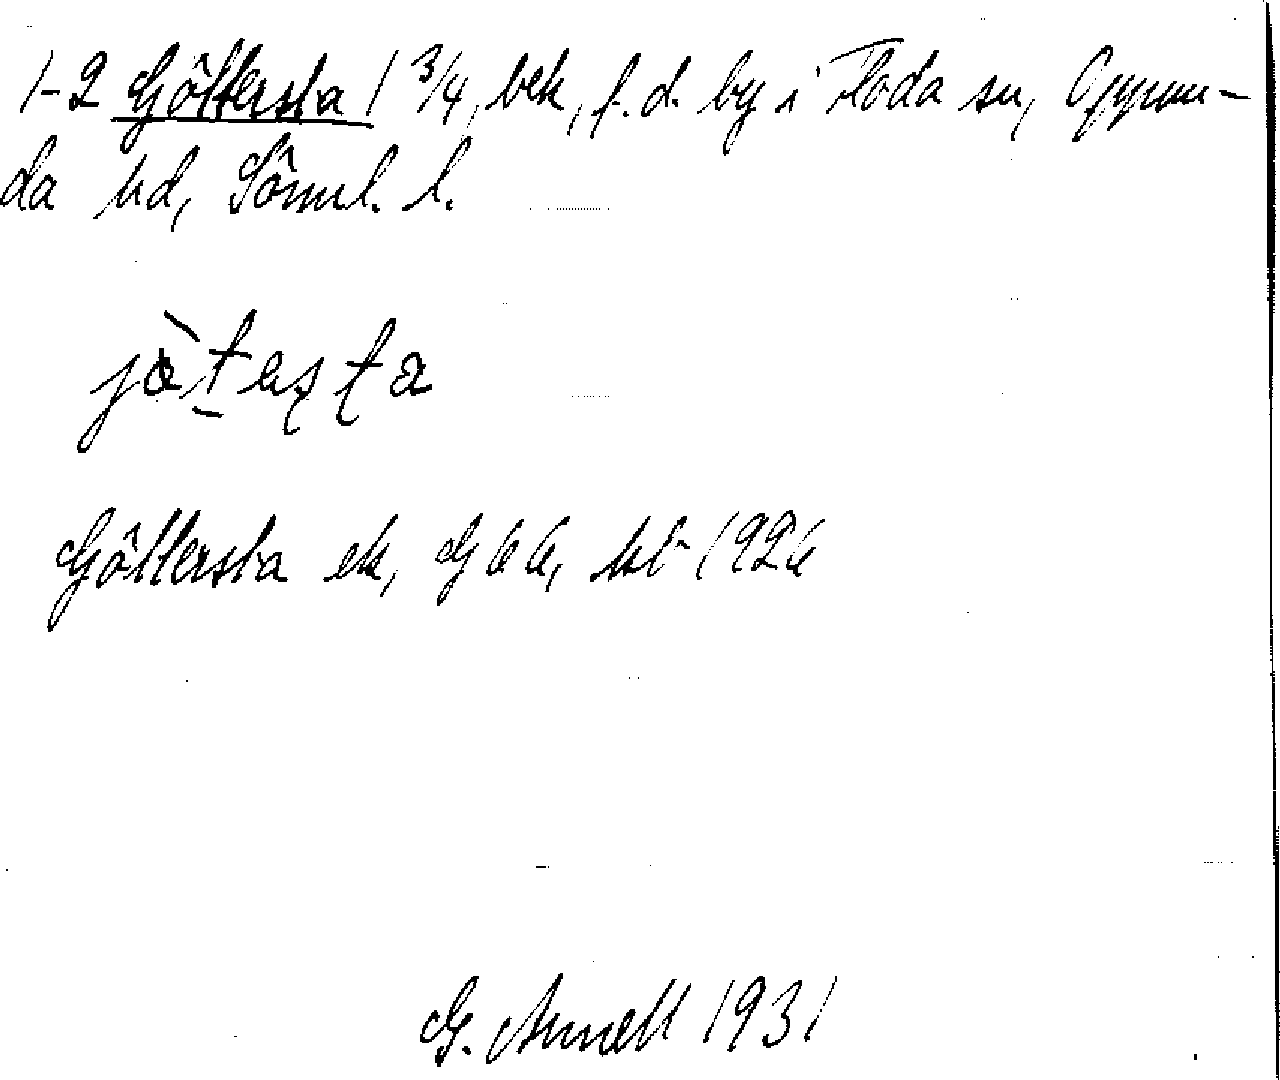 1-2 Göttersta 1 3/4, bek, f. d. by i Floda sn, Oppun-
da hd, Söml. l.
Göttersta ek, G 66, bl 1926
G. Arnell 1931